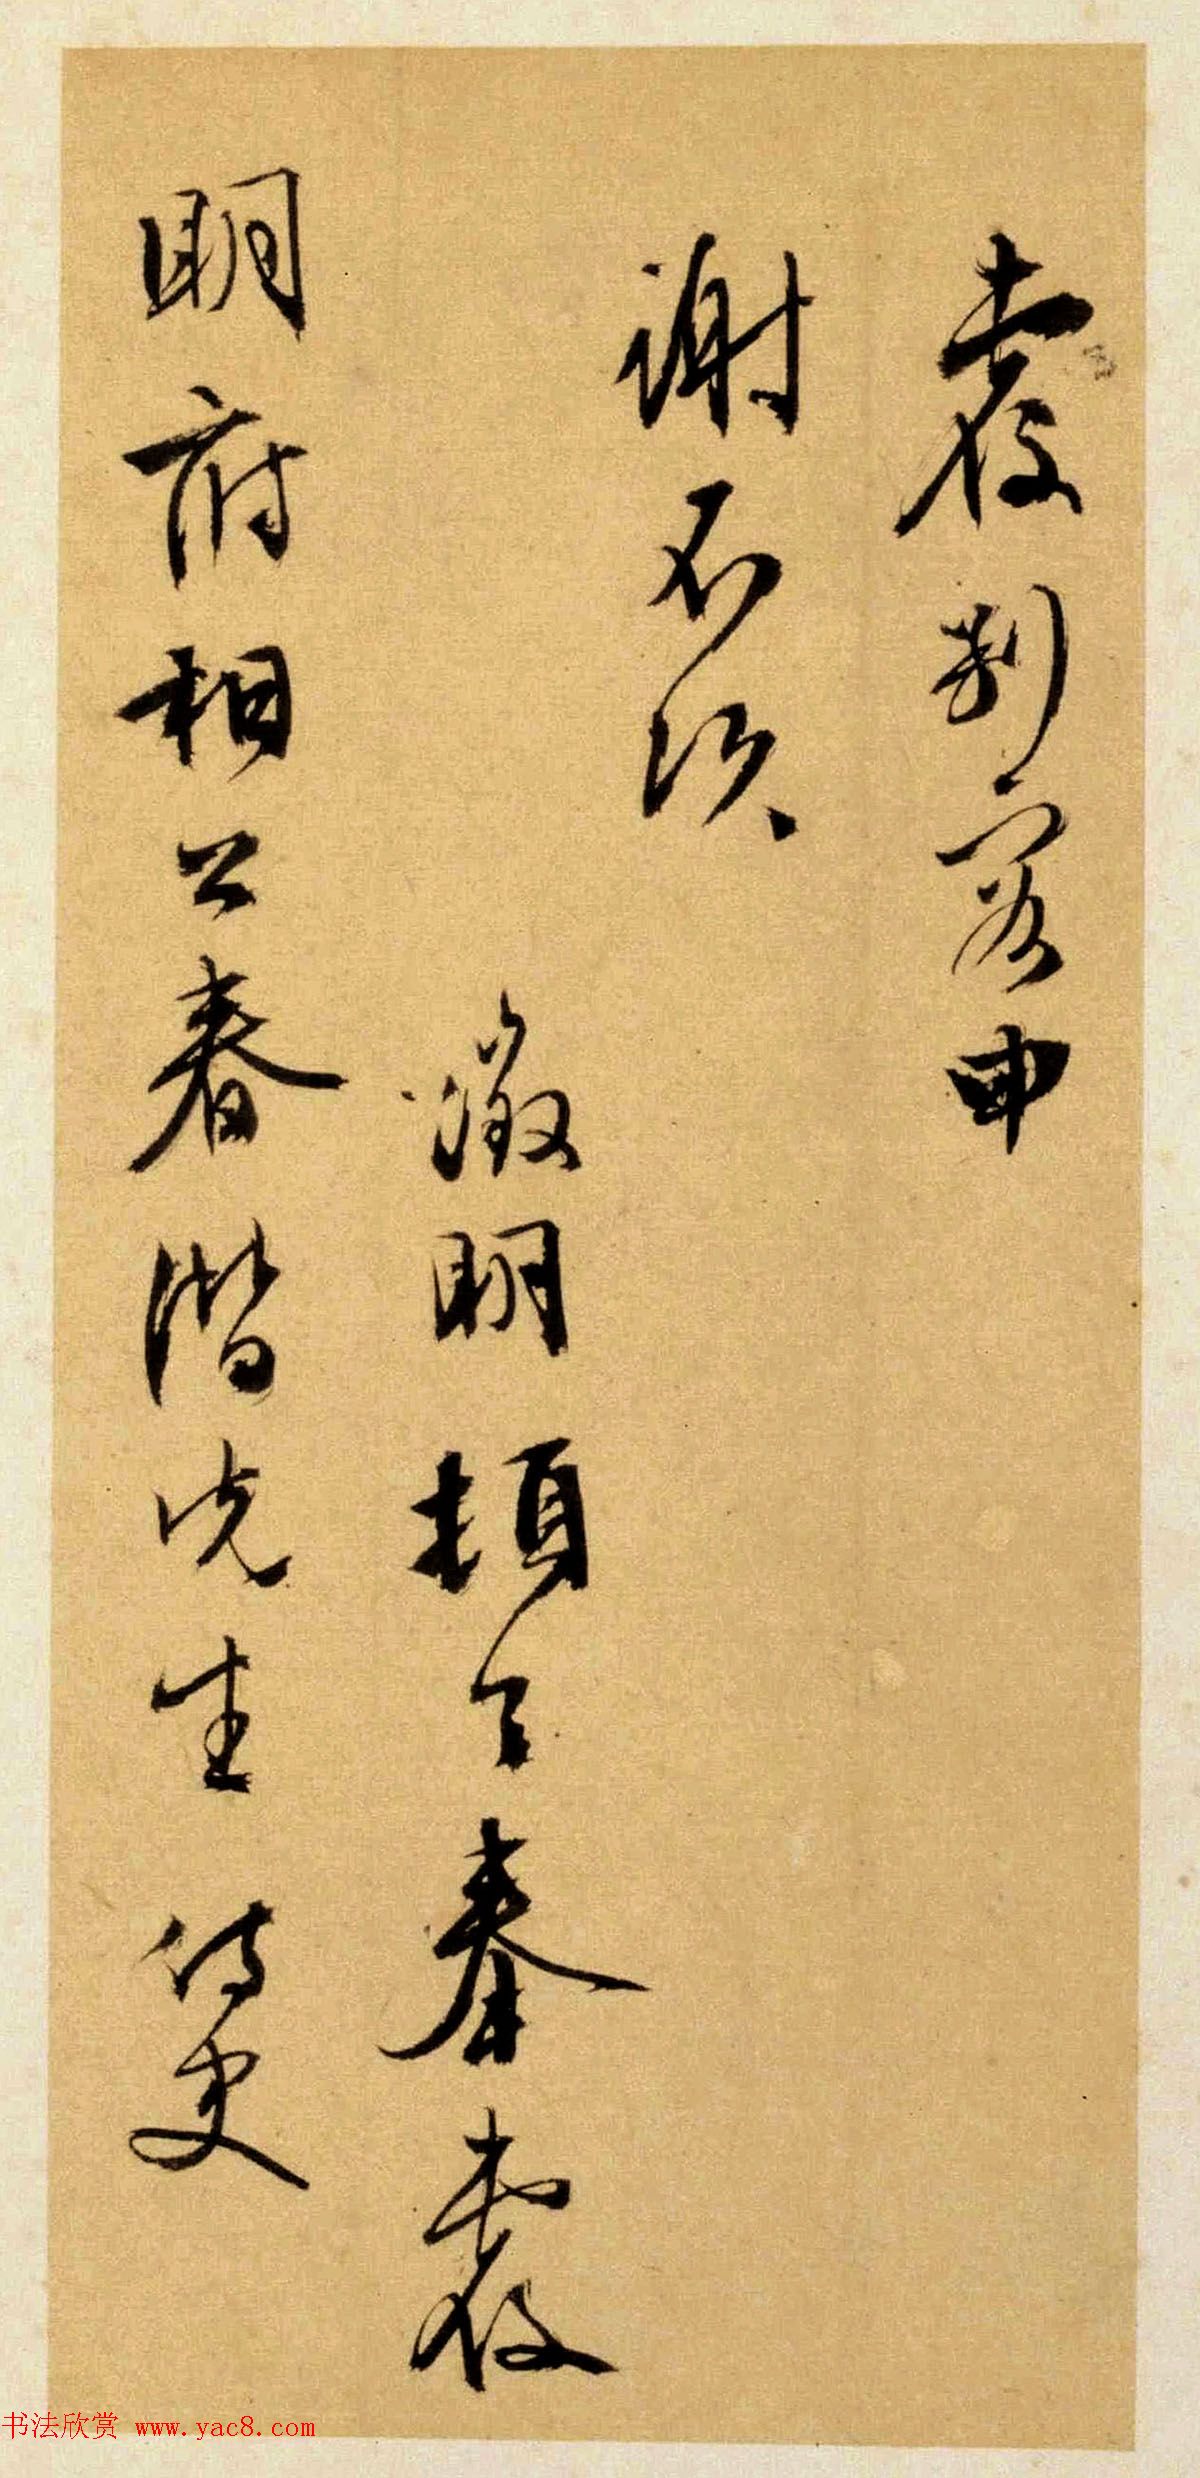 覆別容申
謝不次
徵明頓首奉覆
明府相公春潛先生侍史
书法欣赏 www.yac8.com